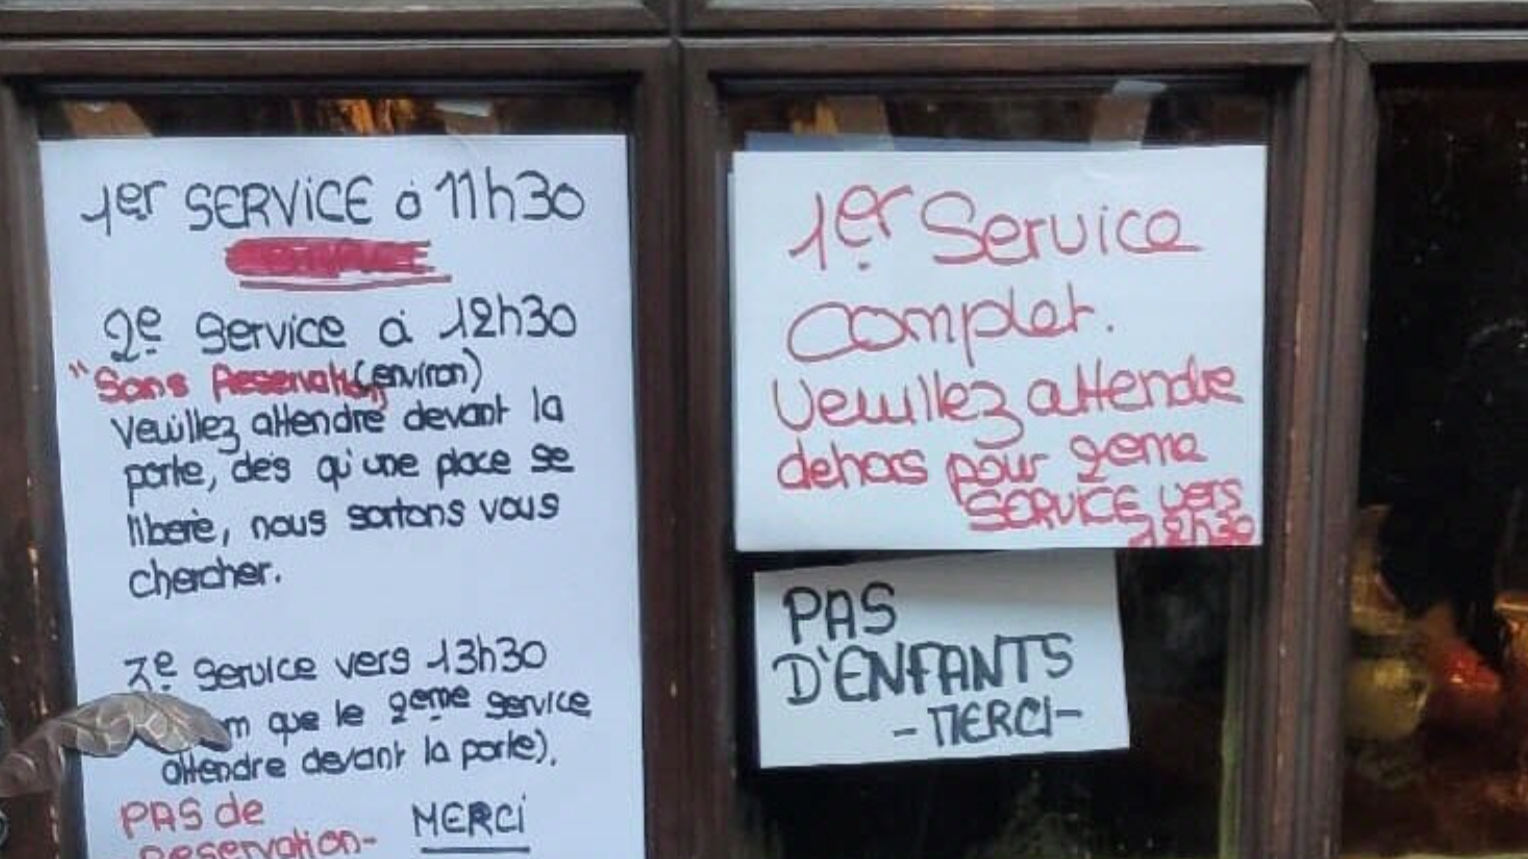 1er SERVICE à 11h30
2e Service à 12h30
"Sans Reservation (environ)
Veuillez attendre devant la
porte, dès qu'une place se
libère, nous sortons vous
chercher.
3e Service vers 13h30
que le 2eme service
attendre devant la porte).
PAS de
Reservation-
MERCI
1er Service
Complet.
Veuillez attendre
dehors pour 2eme
SERVICE vers
12h30
PAS
D'ENFANTS
-MERCI-